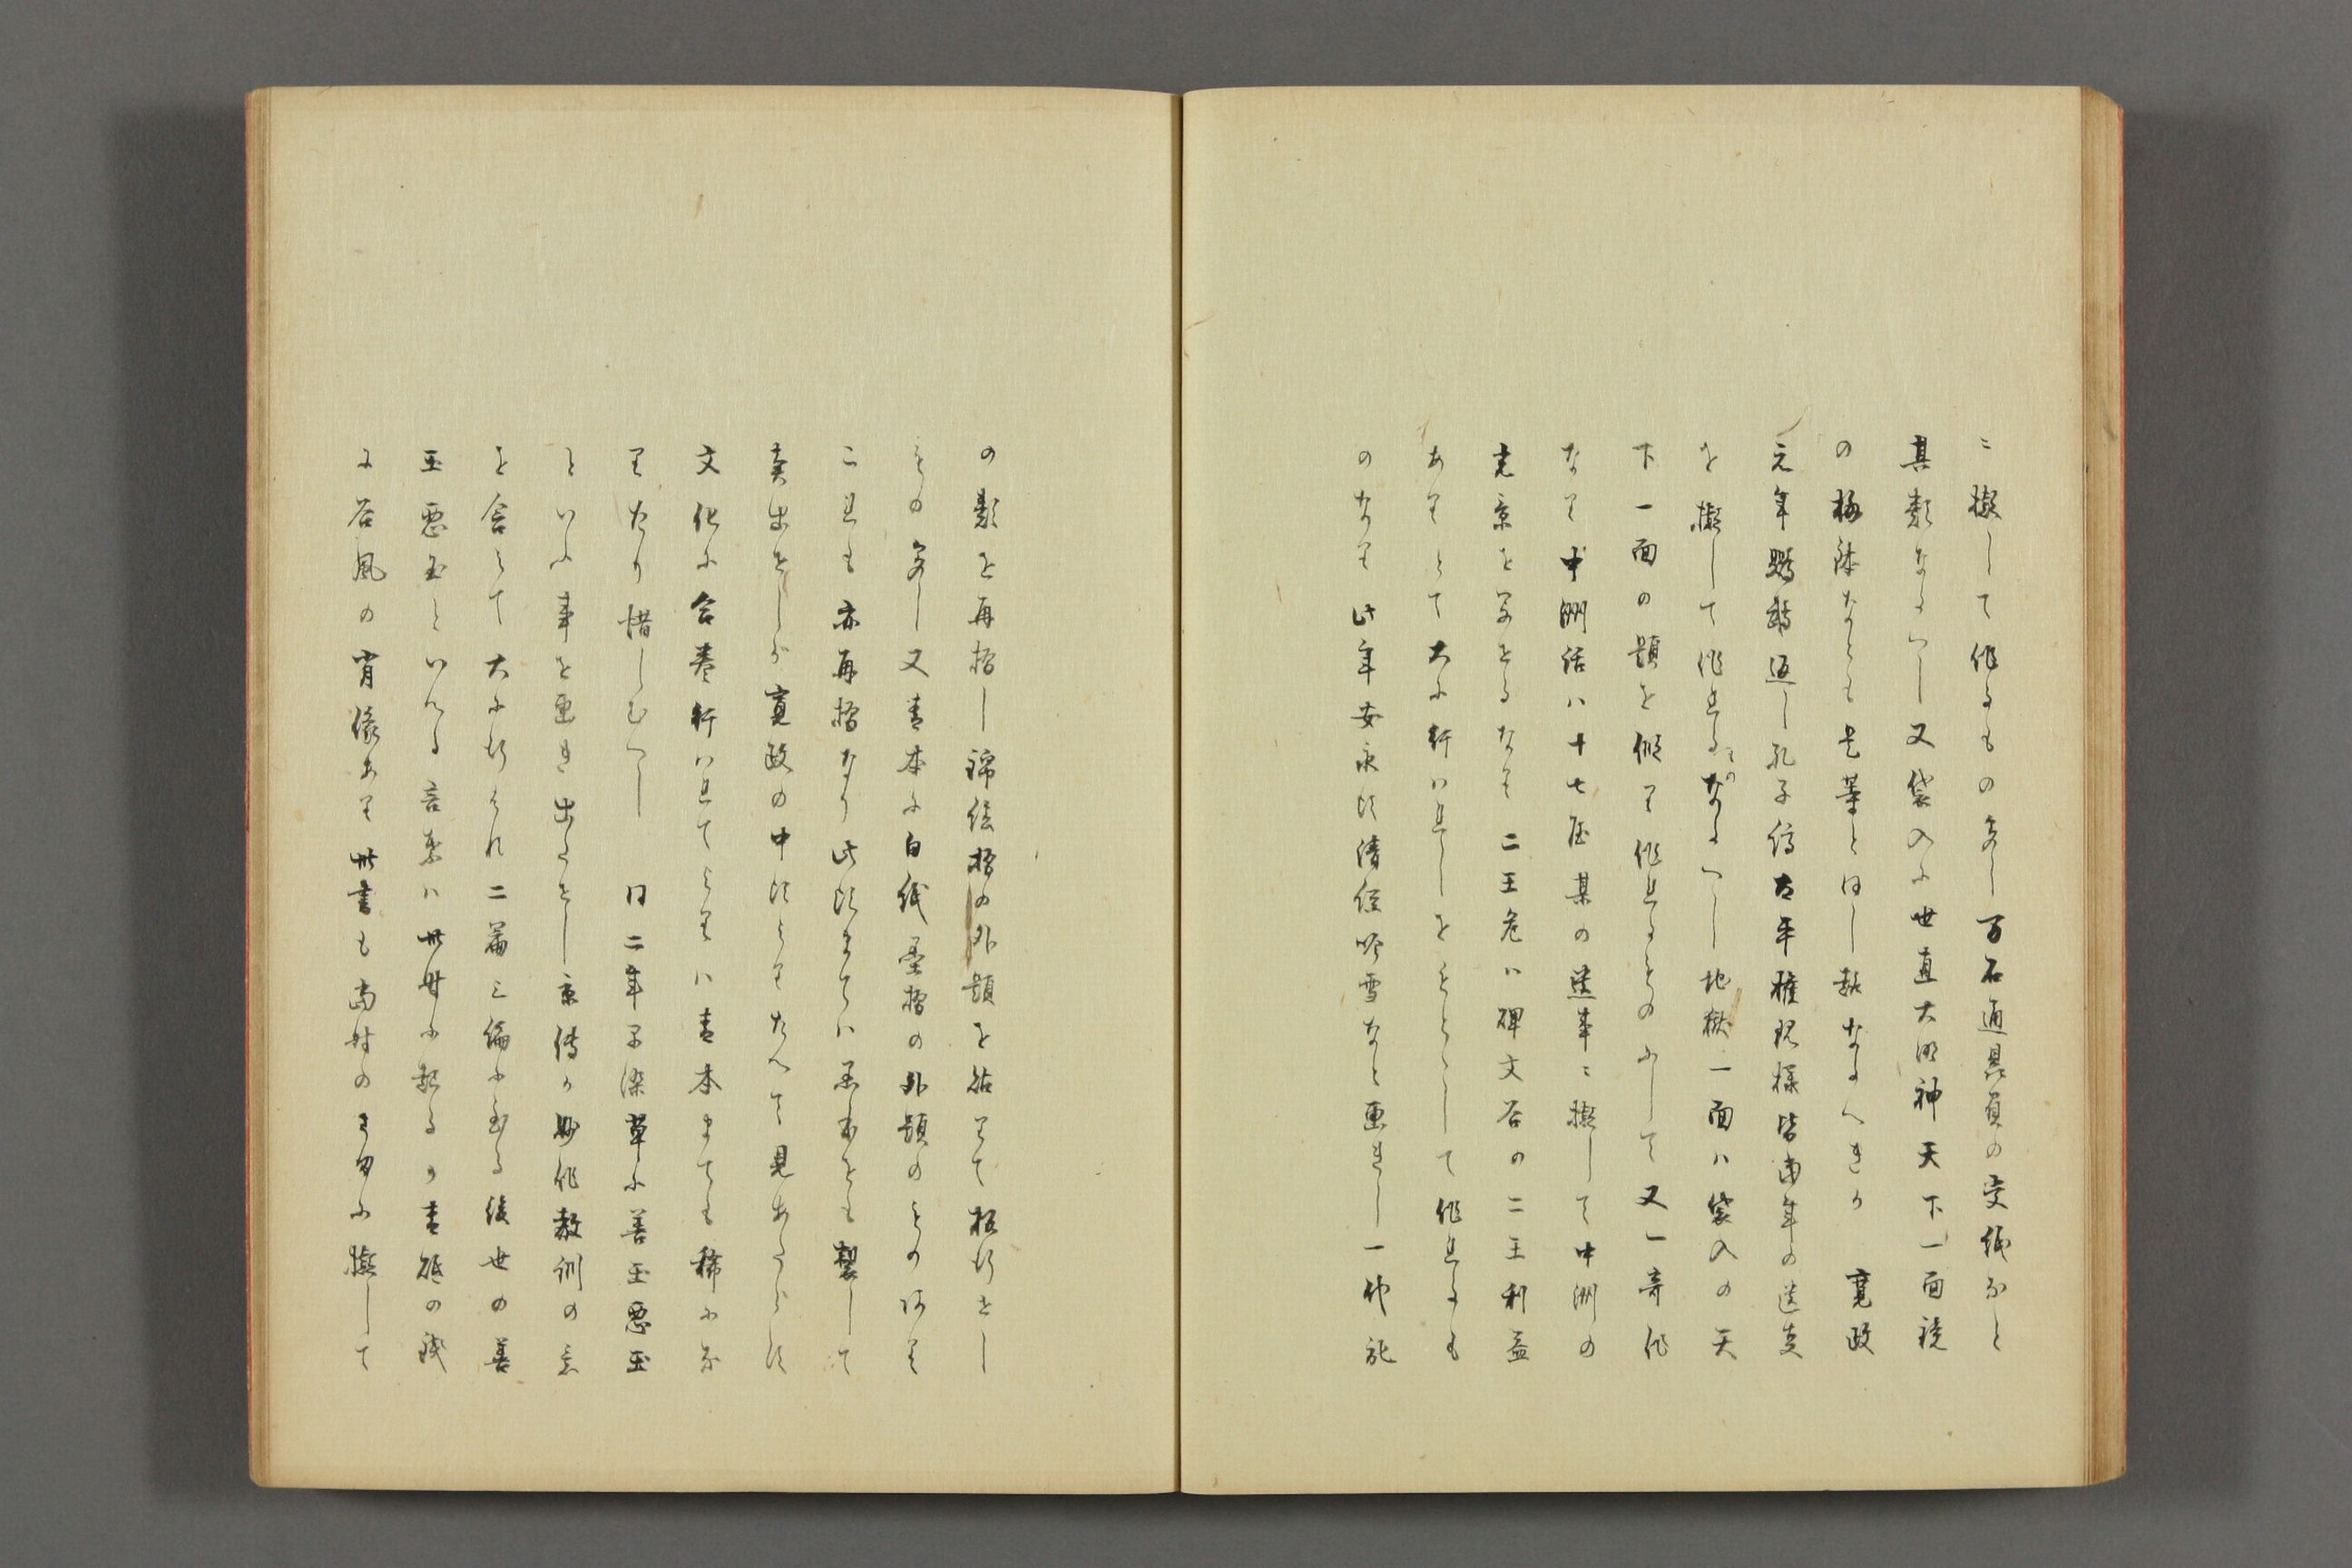 ニ擬して作るもの多し万石通異負の安紙なと
其類なるへし又袋入に世直大明神天下一面鏡
の梅鉢なとも是等と同し類なるへきか　寛政
元年鸚鵡返し孔子縞于時藍染皆当年の
を擬して作れるものなるへし地獄一面ハ袋入の天
下一面の題を似て作れるものにして又一奇作
なり中洲話ハ十七屋某の ニ擬して中洲の
光景を写せるなり二王尊ハ碑文谷の二王利益
ありとて大に行ハれしをもとゝして作れるも
のなり此年安永頃清経吟雪なと画きし一代記
の類を再摺し錦絵摺の外題を粘りて板行せし
もの多し又青本に白紙墨摺の外題のもの有り
これも亦再摺なり此頃まてハ黒本をも製して
売出せしか寛政の中頃よりたへて見あたらす
文化に合巻行ハれてよりハ青本まても稀にな
りたり惜しむへし　同二年早染草に善玉悪玉
といふ事を画き出たせし京伝か妙作教訓の意
を含みて大に行ハれ二篇三編に至る後世の善
玉悪玉といへる言葉ハ此時に起るか青砥の銭
に谷風の肖像あり此書も当時の に擬して